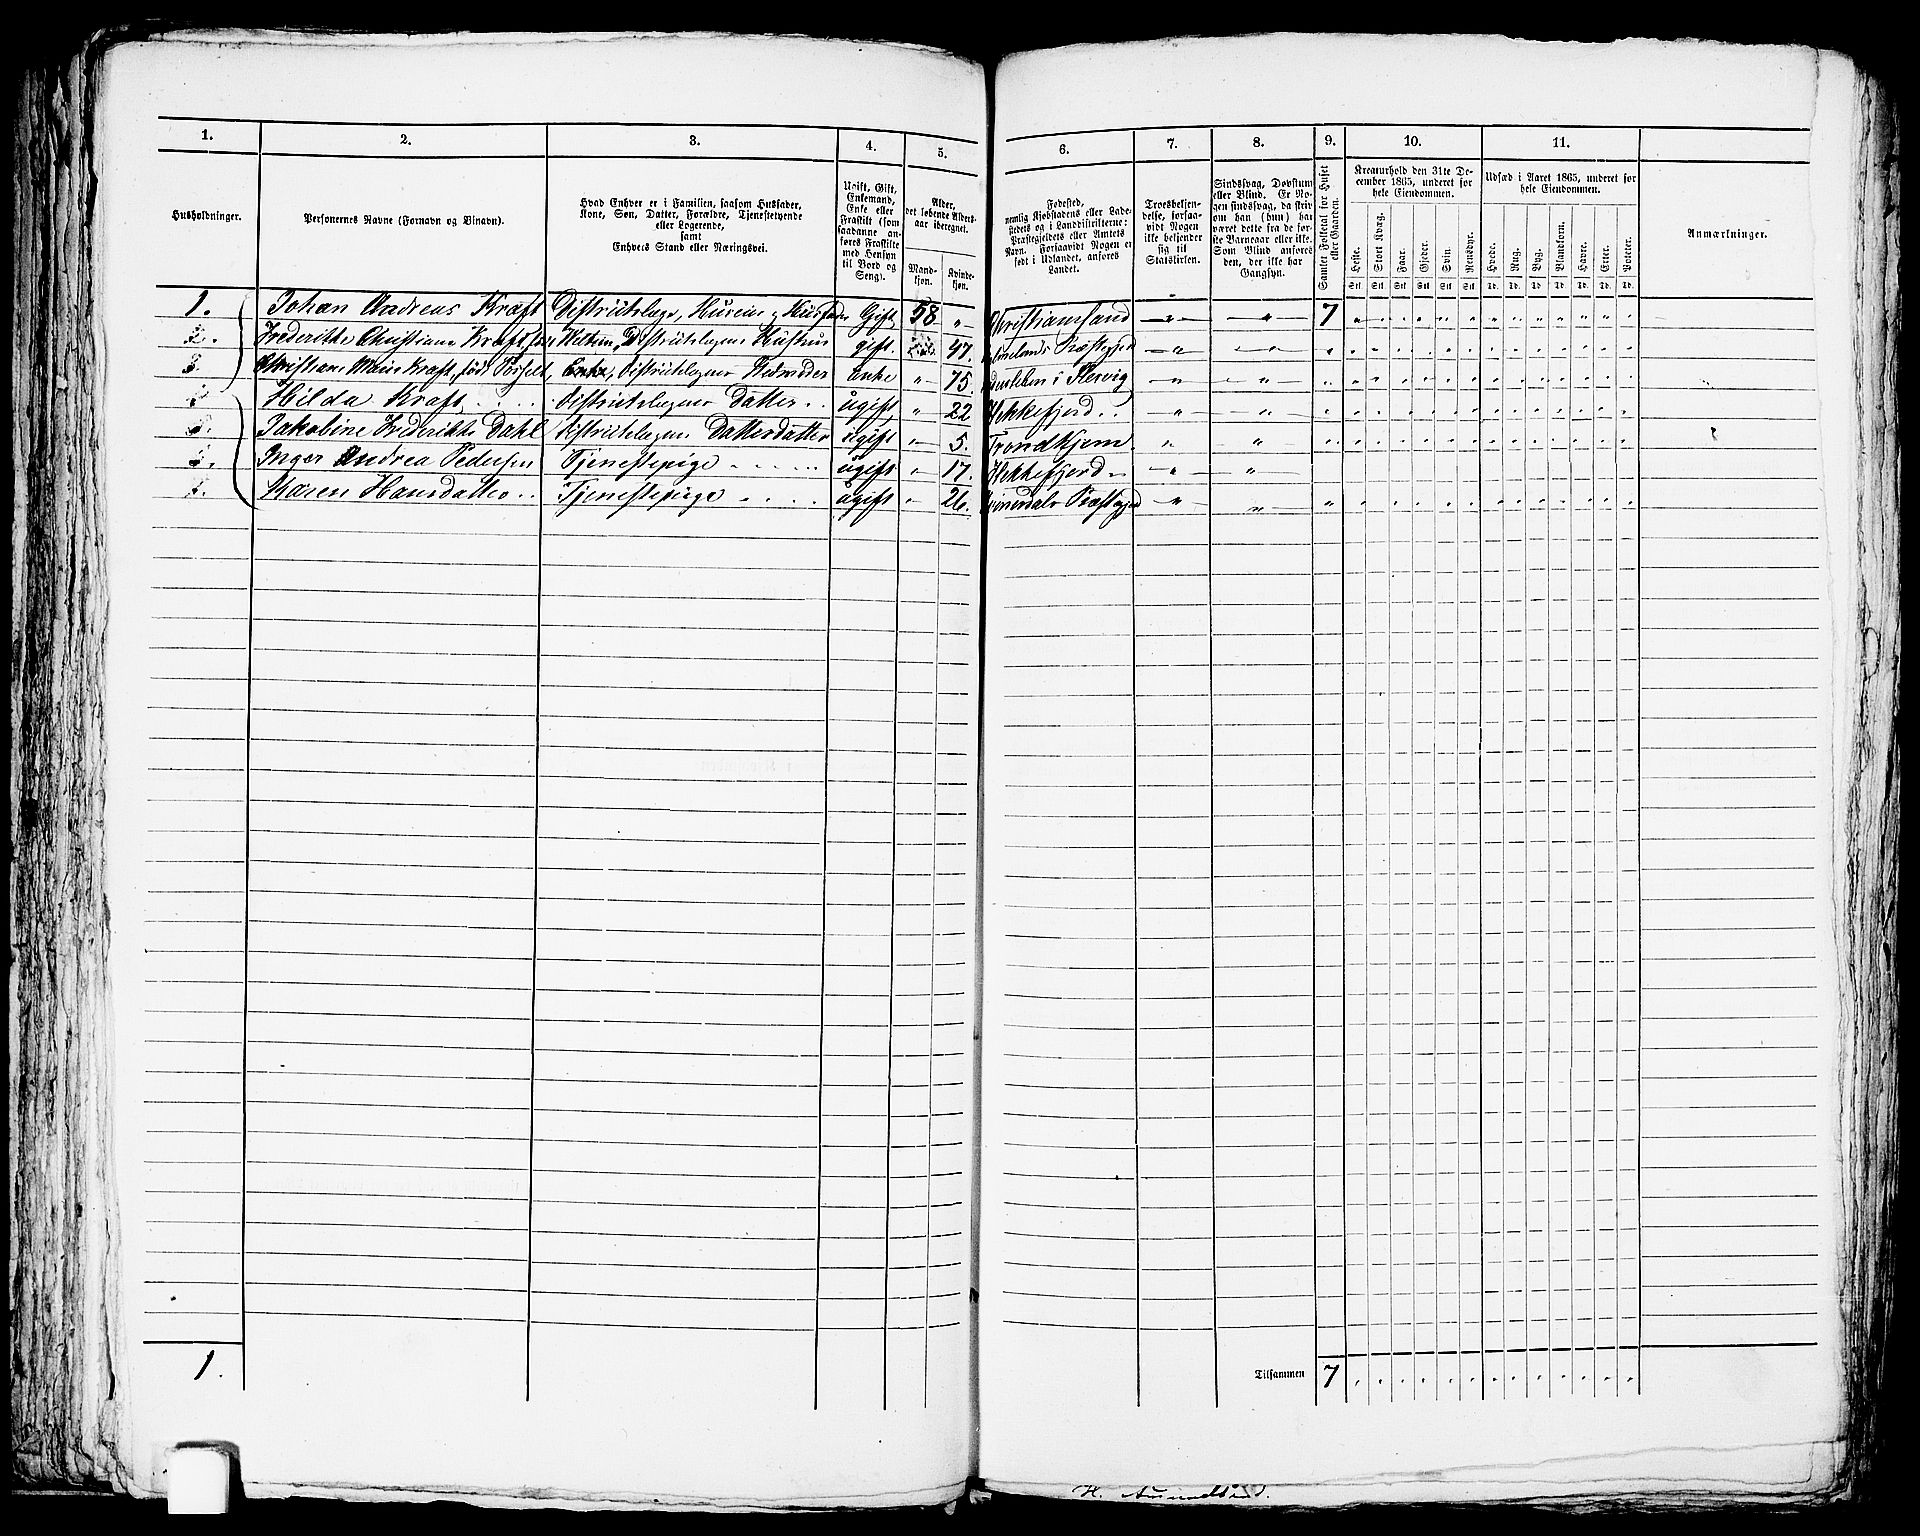 1. 2. 3. 4. 5. 6. 7. 8. 9. 10. 11.
Husholdninger.
Personernes Navne (Fornavn og Tilnavn).
Hvad Enhver er i Familien, saasom Husfader,
Kone, Søn, Datter, Forældre, Tjenestetyende
eller Logerende,
samt
Enhvers Stand eller Næringsvei.
Ugift, Gift,
Enkemand,
Enke eller
Fraskilt (som
saadanne an-
føres Fraskilte
med Hensyn
til Bord og
Seng).
Alder,
det løbende Alders-
aar iberegnet.
Mand-
kjøn.
Kvinde-
kjøn.
Fødested,
nemlig Kjøbstadens eller Lade-
stedets og i Landdistrikterne:
Præstegjeldets eller Amtets
Navn. Forsaavidt Nogen er
født i Udlandet, anføres
Landet.
Troesbekjen-
delse, forsaa-
vidt Nogen
ikke bekjender
sig til
Statskirken.
Sindssvag, Døvstum
eller Blind. Er No-
gen sindssvag, da skriv
om han (hun) har
været dette fra de før-
ste Barneaar eller ikke.
Som Blind anføres
den, der ikke har
Gangsyn.
Samlet Folketal for Huset
eller Gaarden.
Kreaturhold den 31te De-
cember 1865, underet for
hele Eiendommen.
Heste. Stort Kvæg. Faar. Gjeder. Svin. Rensdyr.
Udsæd i Aaret 1865, underet for
hele Eiendommen.
Hvede. Rug. Byg. Blandkorn. Havre. Erter. Poteter.
Anmærkninger.
1. Johan Andreas Kraft Distriktslæge, Huseier og Husfader Gift 58 „ Christianssand „ „ 7
Frederikke Christiane Kraft Distriktslægens Hustru gift. 47. Præstegjeld „ „
Kraft, født Enke, Distriktslægens enke „ 75. i Slesvig „ „
Hilda Kraft Distriktslægens Datter ugift „ 22 Flekkefjord „ „
Jakobine Frederikke Dahl Distriktslægens Datterdatter ugift „ 5. Trondhjem „ „
Inger Andrea Pedersen Tjenestepige ugift „ 17. Flekkefjord „ „
Karen Hansdatter Tjenestepige ugift „ 26. Præstegjeld „ „
1. Tilsammen 7